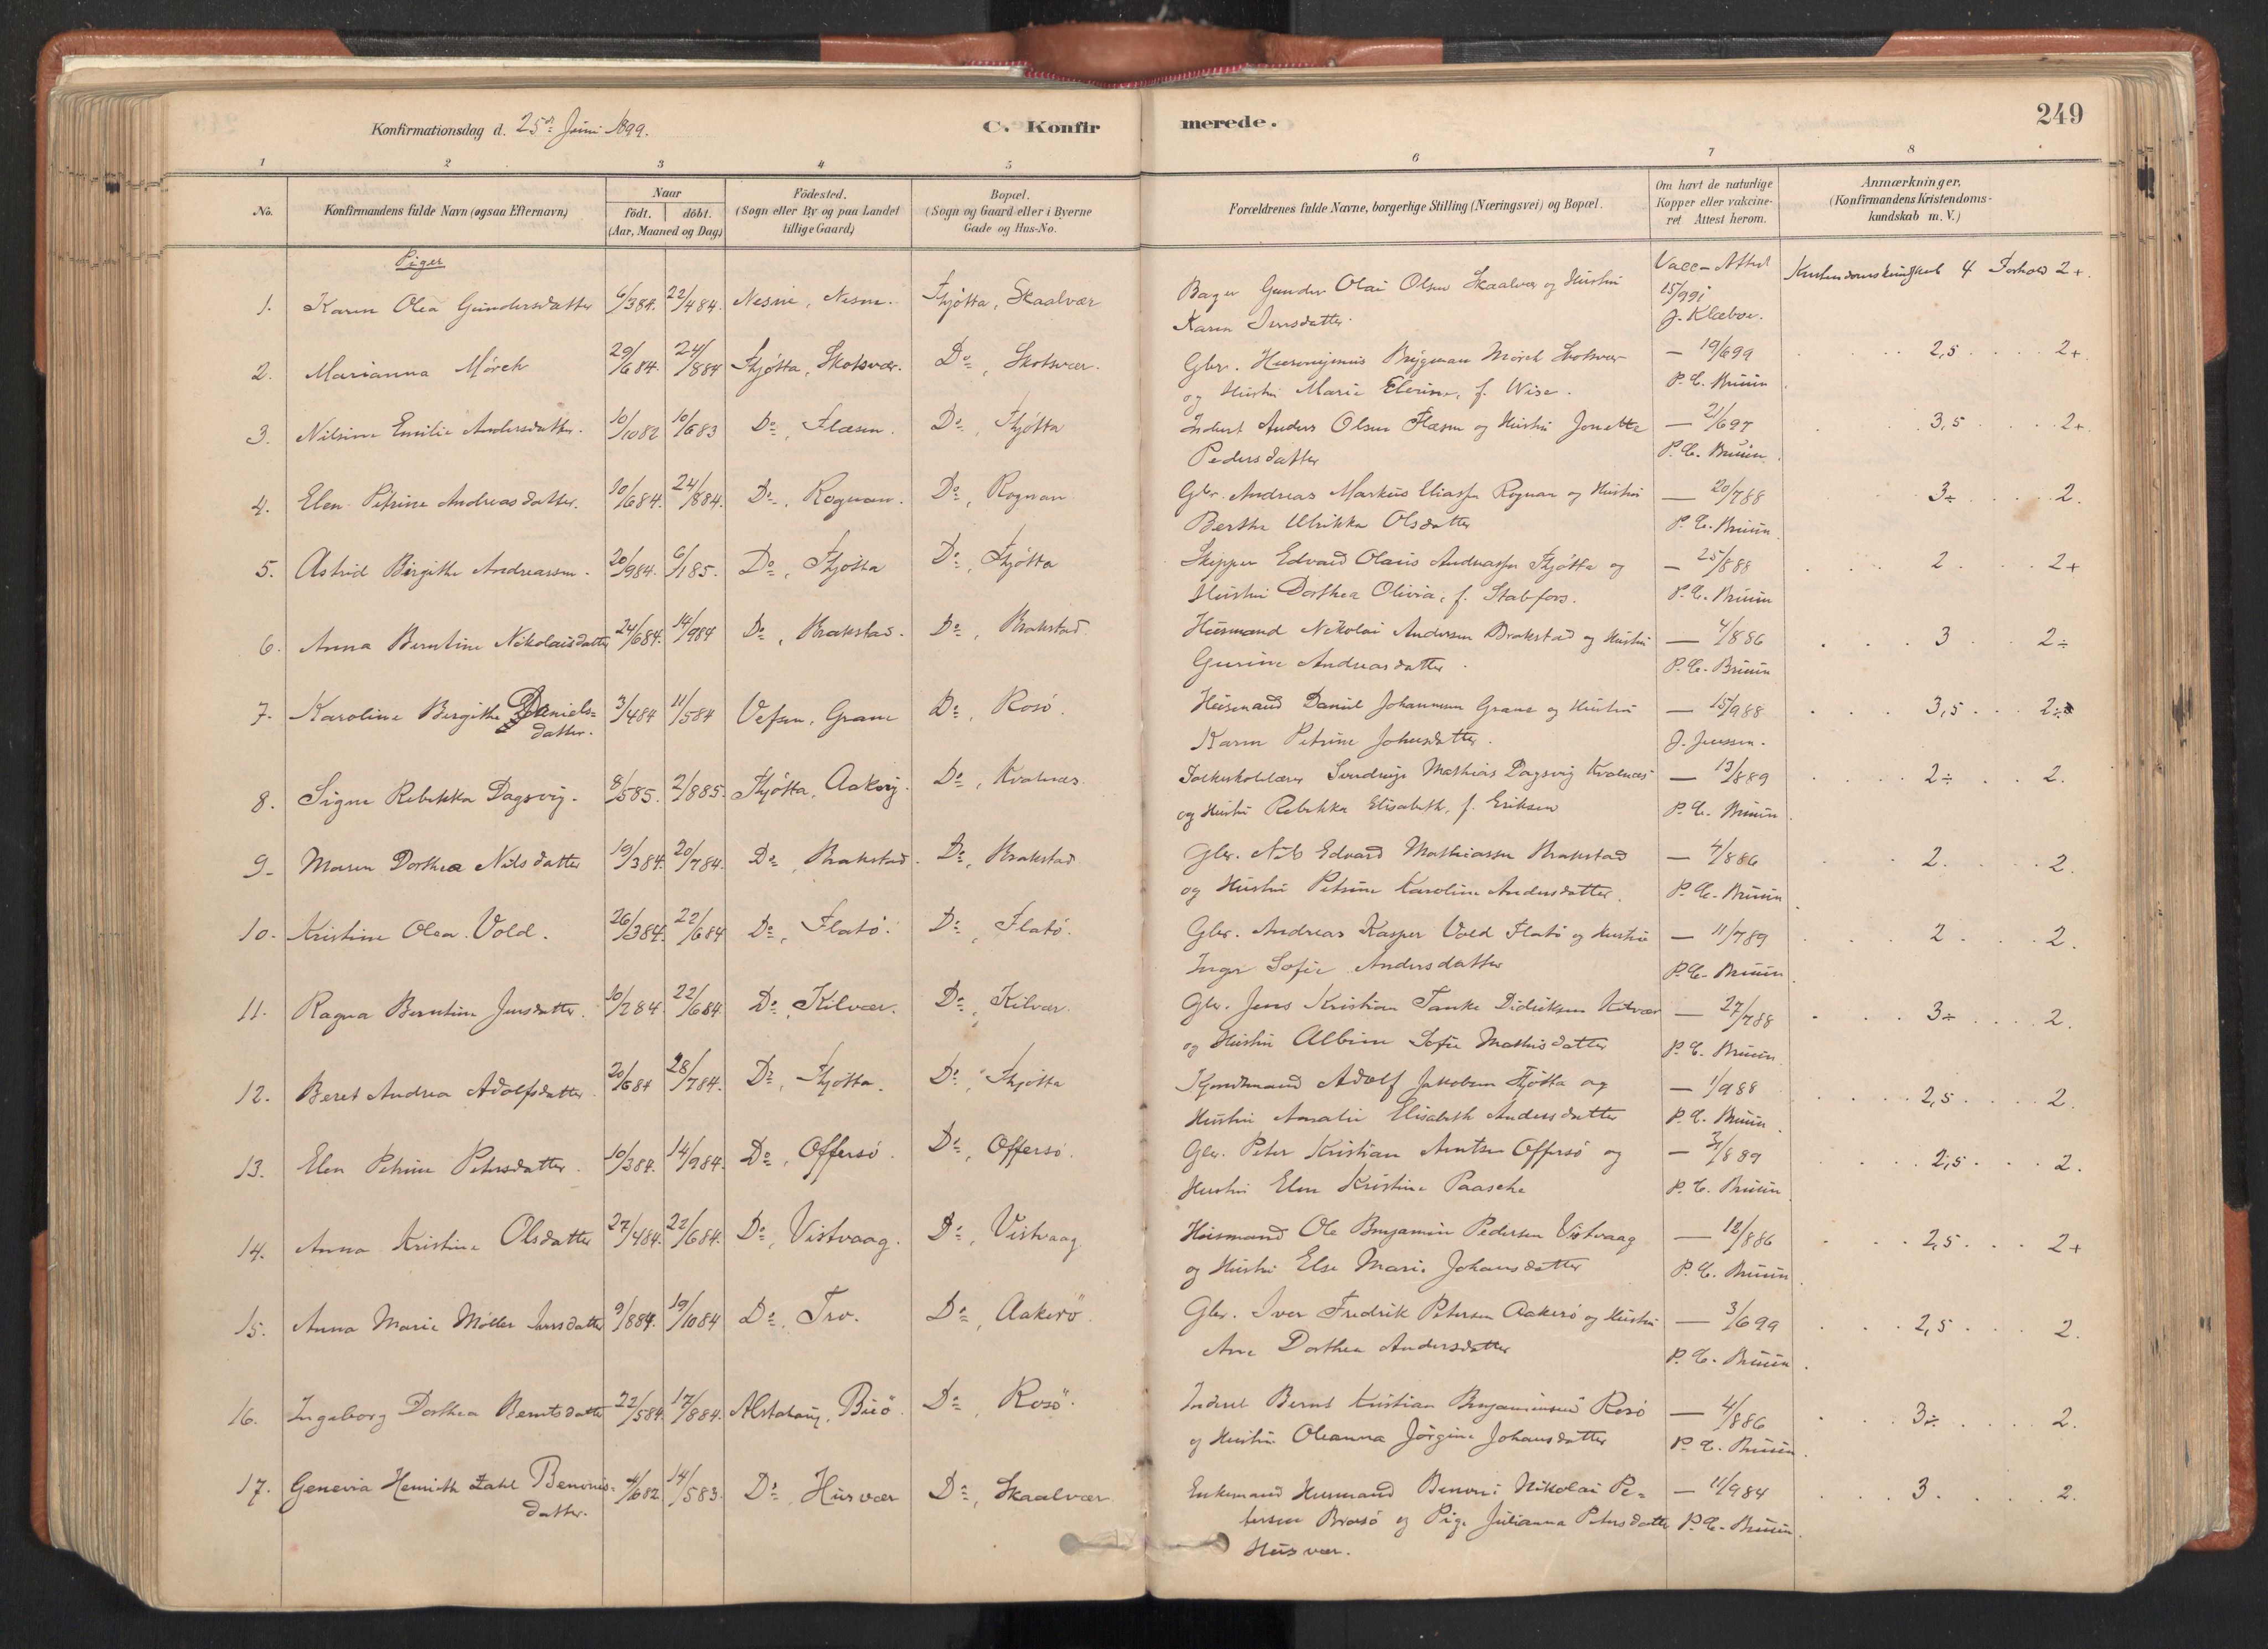 249
Konfirmationsdag d. 25de Juni 1899.
C. Konfirmerede.
1 2 3 4 5 6 7 8
No.
Konfirmandens fulde Navn (ogsaa Efternavn)
Naar
födt. döbt.
(Aar, Maaned og Dag)
Födested.
(Sogn eller By og paa Landet
tillige Gaard)
Bopæl.
(Sogn og Gaard eller i Byerne
Gade og Hus-No.
Forældrenes fulde Navne, borgerlige Stilling (Næringsvei) og Bopæl.
Om havt de naturlige
Kopper eller vakcine-
ret Attest herom.
Anmærkninger.
(Konfirmandens Kristendoms-
kundskab m. V.)
Piger
1. Karen Olea Gundersdatter 6/3 84. 22/4 84. Nesne, Nesne. Tjøtta, Skaalvær Bager Gunder Olai Olsen Skaalvær og Hustru Vacc-Attest Kristendomskundskab 4 Forhold 2+.
Karen Iversdatter. 15/99
J. Klæboe.
2. Marianna Mörch 29/6 84. 24/8 84 Tjøtta, Skotsvær. Do, Skotsvær. Gbr. Hieronymus Brygman Mörch Skotsvær — 19/6 99 2,5 2+
og Hustru Marie Elerine, f. Wise. P. C. Bruun
3. Nilsine Emilie Andersdatter. 10/10 82 10/6 83 Do, Flæsen. Do, Tjøtta Inderst Anders Olsen Flæsen og Hustru Jonette — 2/6 97 3,5 2+
Pedersdatter P. C. Bruun
4. Elen Petrine Andreasdatter. 10/6 84. 24/8 84. Do, Rognan. Do, Rognan Gbr. Andreas Markus Eliassen Rognan og Hustru — 20/7 88 3÷ 2.
Bertha Ulrikka Olsdatter P. C. Bruun
5. Astrid Birgithe Andreassen. 20/9 84. 6/1 85. Do, Tjøtta Do, Tjøtta Skipper Edvard Olaus Andreassen Tjøtta og — 25/8 88 2 2+
Hustru Dorthea Olivia, f. Stabfors. P. C. Bruun
6. Anna Berntine Nikolaisdatter 24/6 84. 14/9 84 Do, Brakstad. Do, Brakstad. Husmand Nikolai Andersen Brakstad og Hustru — 4/8 86 3 2÷
Gurine Andreasdatter. P. C. Bruun
7. Karoline Birgithe Daniels= 3/4 84 11/5 84 Vefsen, Grane Do, Rosö. Husmand Daniel Johannesen Grane og Hustru — 15/9 88 3,5 2÷
datter. Karen Petrine Johnsdatter. J. Jenssen.
8. Signe Rebekka Dagsvig. 8/5 85. 2/8 85. Tjøtta, Aakvig. Do, Kvalnæs. Folkeskolelærer Mathias Dagsvig Kvalnæs — 13/8 89 2÷ 2.
og Hustru Rebekka Elisabeth, f. Eriksen P. C. Bruun
9. Maren Dorthea Nilsdatter 19/3 84. 20/7 84. Do, Brakstad. Do, Brakstad Gbr. Nils Edvard Mathiassen Brakstad — 4/8 86 2. 2.
og Hustru Petrine Karoline Andersdatter. P. C. Bruun
10. Kristine Olea Vold. 26/3 84. 22/6 84 Do, Flatö. Do, Flatö. Gbr. Andreas Kasper Vold Flatö og Hustru — 11/7 89 2 2.
Inger Sofie Andersdatter P. C. Bruun
11. Ragna Berntine Jensdatter. 10/2 84 22/6 84. Do, Kilvær. Do, Kilvær. Gbr. Jens Kristian Tanke Didriksen Kilvær — 27/7 88 3÷ 2.
og Hustru Albine Sofie Mathisdatter P. C. Bruun
12. Beret Andrea Adolfsdatter. 20/6 84 28/7 84. Do, Tjøtta. Do, Tjøtta Adolf Jakobsen Tjøtta og — 1/9 88 2,5 2.
Hustru Amalie Elisabeth Andersdatter P. C. Bruun
13. Elen Petrine Petersdatter. 10/3 84. 14/9 84. Do, Offersö. Do, Offersö. Gbr. Peter Kristian Arntsen Offersö og — 3/8 89 2,5 2.
Hustru Elen Kristine Paasche P. C. Bruun
14. Anna Kristine Olsdatter 27/4 84. 22/6 84. Do, Vistvaag. Do, Vistvaag Husmand Ole Benjamin Pedersen Vistvaag — 12/8 86 2,5 2+
og Hustru Else Marie Johansdatter P. C. Bruun
15. Anna Marie Möller Iversdatter 9/8 84. 19/10 84 Do, Tro. Do, Aakerö Gbr. Iver Fredrik Petersen Aakerö og Hustru — 3/6 99 2,5 2.
Ane Dorthea Andersdatter P. C. Bruun
16. Ingeborg Dorthea Berntsdatter 22/5 84. 17/8 84. Alstahaug, Buö. Do, Rosö. Inderst Bernt Kristian Benjaminsen Rosö — 4/8 86 3÷ 2.
og Hustru Oleanna Jörgine Johansdatter P. C. Bruun
17. Genevia Henrikth Zahl Benonis= 4/6 82 14/5 83. Do, Husvær Do, Skaalvær Enkemand Husmand Benoni Nikolai Pe= — 11/9 84 3. 2.
datter. tersen Brasö og Pige Julianna Petersdatter P. C. Bruun
Husvær.